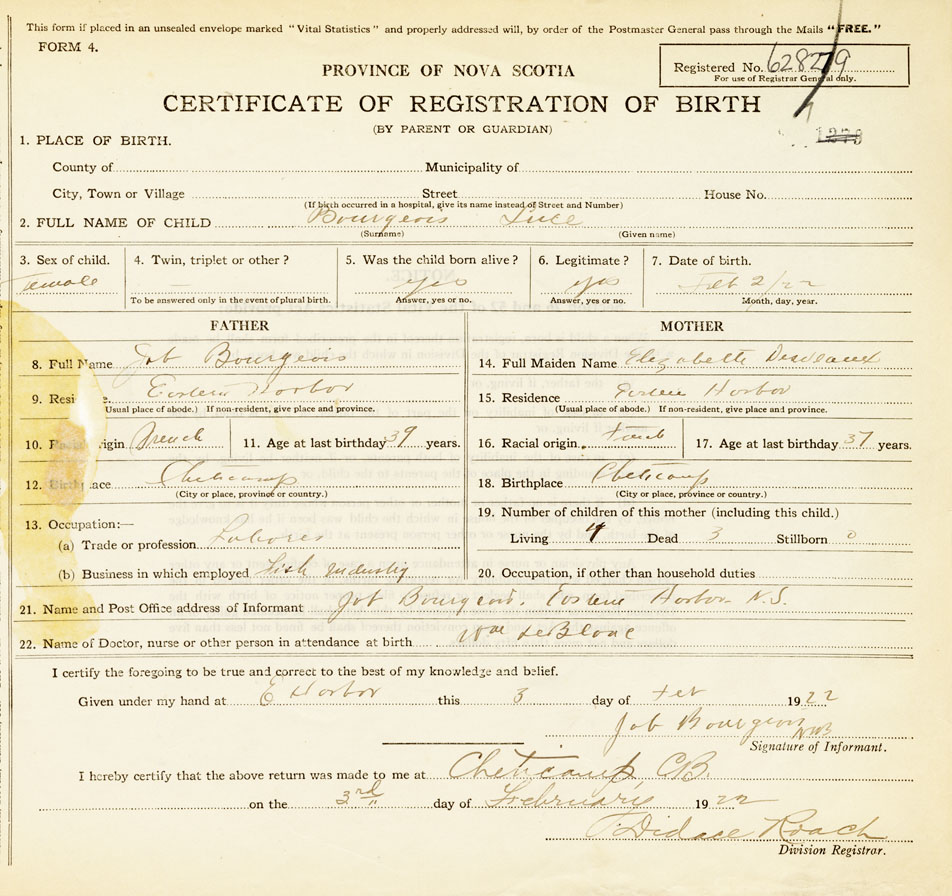 This form if placed in an unsealed envelope marked "Vital Statistics" and properly addressed will, by order of the Postmaster General pass through the Mails "FREE."
FORM 4.
Registered No. 628279
For use of Registrar General only.
PROVINCE OF NOVA SCOTIA
CERTIFICATE OF REGISTRATION OF BIRTH
(BY PARENT OR GUARDIAN)
1. PLACE OF BIRTH.
County of Municipality of
City, Town or Village Street House No.
(If birth occurred in a hospital, give its name instead of Street and Number)
2. FULL NAME OF CHILD Bourgeois Luce
(Surname) (Given name)
3. Sex of child. 4. Twin, triplet or other? 5. Was the child born alive? 6. Legitimate? 7. Date of birth.
Female — yes yes Feb 2/22
To be answered only in the event of plural birth. Answer, yes or no. Answer, yes or no. Month, day, year.
FATHER MOTHER
8. Full Name Job Bourgeois 14. Full Maiden Name Elizabeth Desveaux
9. Resi e. Eastern Harbor 15. Residence Eastern Harbor
(Usual place of abode.) If non-resident, give place and province. (Usual place of abode.) If non-resident, give place and province.
10. Racial origin French 11. Age at last birthday 39 years. 16. Racial origin 17. Age at last birthday 37 years.
12. Birthplace Cheticamp 18. Birthplace Cheticamp
(City or place, province or country.) (City or place, province or country.)
13. Occupation:— 19. Number of children of this mother (including this child.)
(a) Trade or profession Laborer Living 4 Dead 3 Stillborn 0
(b) Business in which employed Fish industry 20. Occupation, if other than household duties
21. Name and Post Office address of Informant Job Bourgeois. Eastern Harbor N.S.
22. Name of Doctor, nurse or other person in attendance at birth Wm LeBlanc
I certify the foregoing to be true and correct to the best of my knowledge and belief.
Given under my hand at E Harbor this 3 day of Feb 1922
Job Bourgeois
Signature of Informant.
I hereby certify that the above return was made to me at Cheticamp, C.B.
on the 3rd day of February 1922
Didace Roach
Division Registrar.